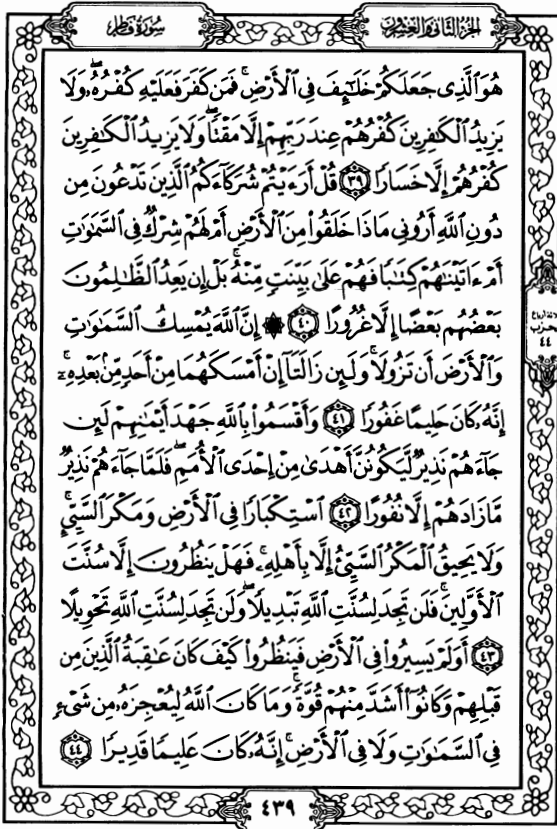 سُورَةُ فَاطِرٍ
الجُزْءُ الثَّانِي وَالعِشْرُونَ
هُوَ ٱلَّذِى جَعَلَكُمْ خَلَٰٓئِفَ فِى ٱلْأَرْضِ ۚ فَمَن كَفَرَ فَعَلَيْهِ كُفْرُهُۥ ۖ وَلَا
يَزِيدُ ٱلْكَٰفِرِينَ كُفْرُهُمْ عِندَ رَبِّهِمْ إِلَّا مَقْتًا ۖ وَلَا يَزِيدُ ٱلْكَٰفِرِينَ
كُفْرُهُمْ إِلَّا خَسَارًا ٣٩ قُلْ أَرَءَيْتُمْ شُرَكَآءَكُمُ ٱلَّذِينَ تَدْعُونَ مِن
دُونِ ٱللَّهِ أَرُونِى مَاذَا خَلَقُوا۟ مِنَ ٱلْأَرْضِ أَمْ لَهُمْ شِرْكٌ فِى ٱلسَّمَٰوَٰتِ
أَمْ ءَاتَيْنَٰهُمْ كِتَٰبًا فَهُمْ عَلَىٰ بَيِّنَتٍ مِّنْهُ ۚ بَلْ إِن يَعِدُ ٱلظَّٰلِمُونَ
بَعْضُهُم بَعْضًا إِلَّا غُرُورًا ٤٠ ۞ إِنَّ ٱللَّهَ يُمْسِكُ ٱلسَّمَٰوَٰتِ
وَٱلْأَرْضَ أَن تَزُولَا ۚ وَلَئِن زَالَتَآ إِنْ أَمْسَكَهُمَا مِنْ أَحَدٍ مِّنۢ بَعْدِهِۦٓ ۚ
إِنَّهُۥ كَانَ حَلِيمًا غَفُورًا ٤١ وَأَقْسَمُوا۟ بِٱللَّهِ جَهْدَ أَيْمَٰنِهِمْ لَئِن
جَآءَهُمْ نَذِيرٌ لَّيَكُونُنَّ أَهْدَىٰ مِنْ إِحْدَى ٱلْأُمَمِ ۖ فَلَمَّا جَآءَهُمْ نَذِيرٌ
مَّا زَادَهُمْ إِلَّا نُفُورًا ٤٢ ٱسْتِكْبَارًا فِى ٱلْأَرْضِ وَمَكْرَ ٱلسَّيِّئِ ۚ
وَلَا يَحِيقُ ٱلْمَكْرُ ٱلسَّيِّئُ إِلَّا بِأَهْلِهِۦ ۚ فَهَلْ يَنظُرُونَ إِلَّا سُنَّتَ
ٱلْأَوَّلِينَ ۚ فَلَن تَجِدَ لِسُنَّتِ ٱللَّهِ تَبْدِيلًا ۖ وَلَن تَجِدَ لِسُنَّتِ ٱللَّهِ تَحْوِيلًا
٤٣ أَوَلَمْ يَسِيرُوا۟ فِى ٱلْأَرْضِ فَيَنظُرُوا۟ كَيْفَ كَانَ عَٰقِبَةُ ٱلَّذِينَ مِن
قَبْلِهِمْ وَكَانُوٓا۟ أَشَدَّ مِنْهُمْ قُوَّةً ۚ وَمَا كَانَ ٱللَّهُ لِيُعْجِزَهُۥ مِن شَىْءٍ
فِى ٱلسَّمَٰوَٰتِ وَلَا فِى ٱلْأَرْضِ ۚ إِنَّهُۥ كَانَ عَلِيمًا قَدِيرًا ٤٤
حزب
٤٤
٤٣٩